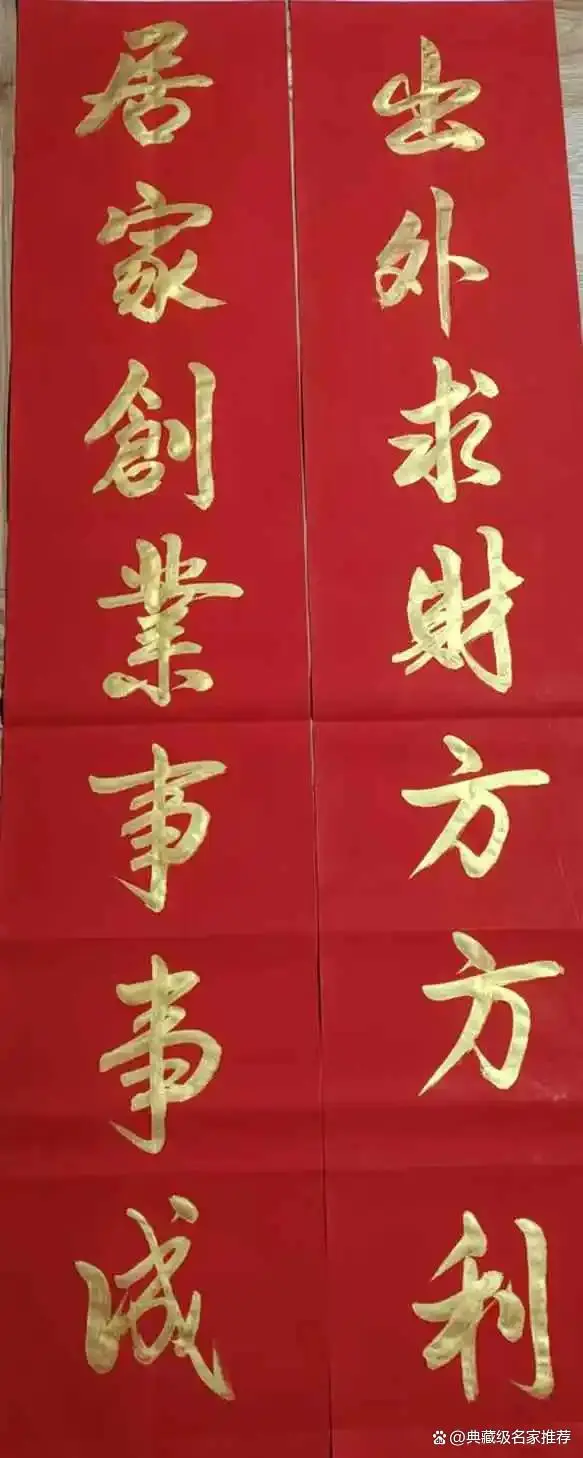 出外求財方方利
居家創業事事诚
@典藏级名家推荐